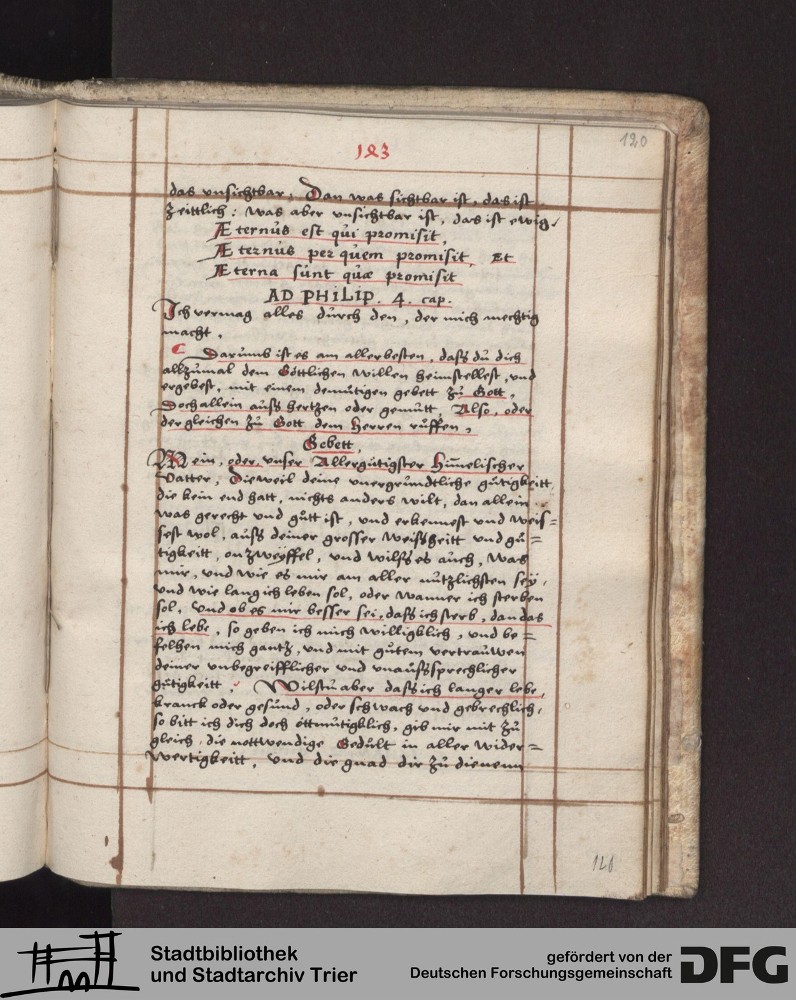 120
123
das unsichtbar, Dan was sichtbar ist, das ist
Zeittlich: was aber unsichtbar ist, das ist ewig.
Æternus est qui promisit,
Æternus per quem promisit, Et
Æterna sunt quæ promisit
AD PHILIP. 4. cap.
Ich vermag alles durch den, der mich mechtig
macht.
C Darumb ist es am allerbesten, dass du dich
allzumal dem Göttlichen willen heimstellest, und
ergebest, mit einem demutigen gebett zu Gott,
Doch allein auss hertzen oder gemutt, Also, oder
der gleichen zu Gott dem Herren ruffen,
Gebett,
Mein, oder, unser Allergutigster Himelischer
Vatter, Dieweil deine unergrundtliche gutigkeitt,
die kein end hatt, nichts anders wilt, dan allein
was gerecht und gutt ist, und erkennest und weis=
sest wol, auss deiner grosser Weissheitt und gu=
tigkeitt, on zweyffel, und wilss es auch, was
mir, und wie es mir am aller nutzlichsten sey,
und wie lang ich leben sol, oder wanner ich sterben
sol, und ob es mir besser sei, dass ich sterb, dan das
ich lebe, so geben ich mich willigklich, und be=
felhen mich gantz, und mit gutem vertrauwen
deiner unbegreifflicher und unaussprechlicher
gutigkeitt. Wilstu aber dass ich langer lebe,
kranck oder gesund, oder schwach und gebrechlich,
so bitt ich dich doch ottmutigklich, gib mir mit zu
gleich, die nottwendige Gedult in aller wider=
wertigkeitt, und die gnad dir zu dienenn
Stadtbibliothek
und Stadtarchiv Trier
gefördert von der
Deutschen Forschungsgemeinschaft
DFG